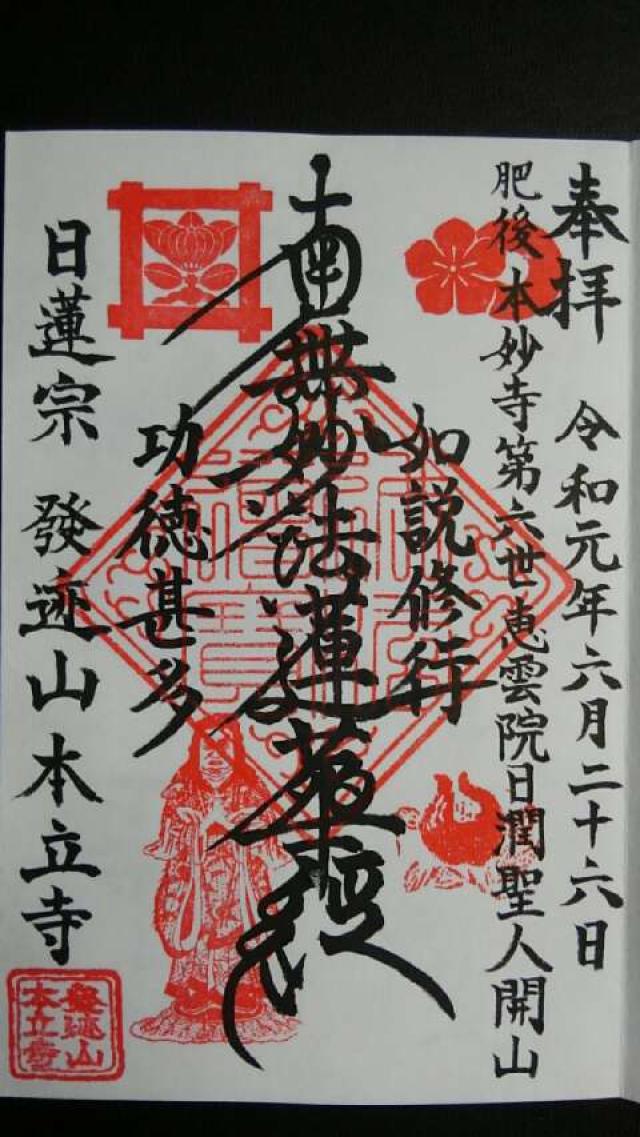 奉拝
令和元年六月二十六日
肥後本妙寺第六世恵雲院日潤聖人開山
如説修行
南無妙法蓮華経
功徳甚多
日蓮宗 發迹山本立寺
發迹山
本立寺